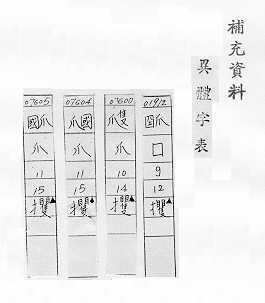 補充資料
異體字表
01912
囗
9
12
攫▲
07600
爪
10
14
攫▲
07604
爪
11
15
攫▲
07605
爪
11
15
攫▲